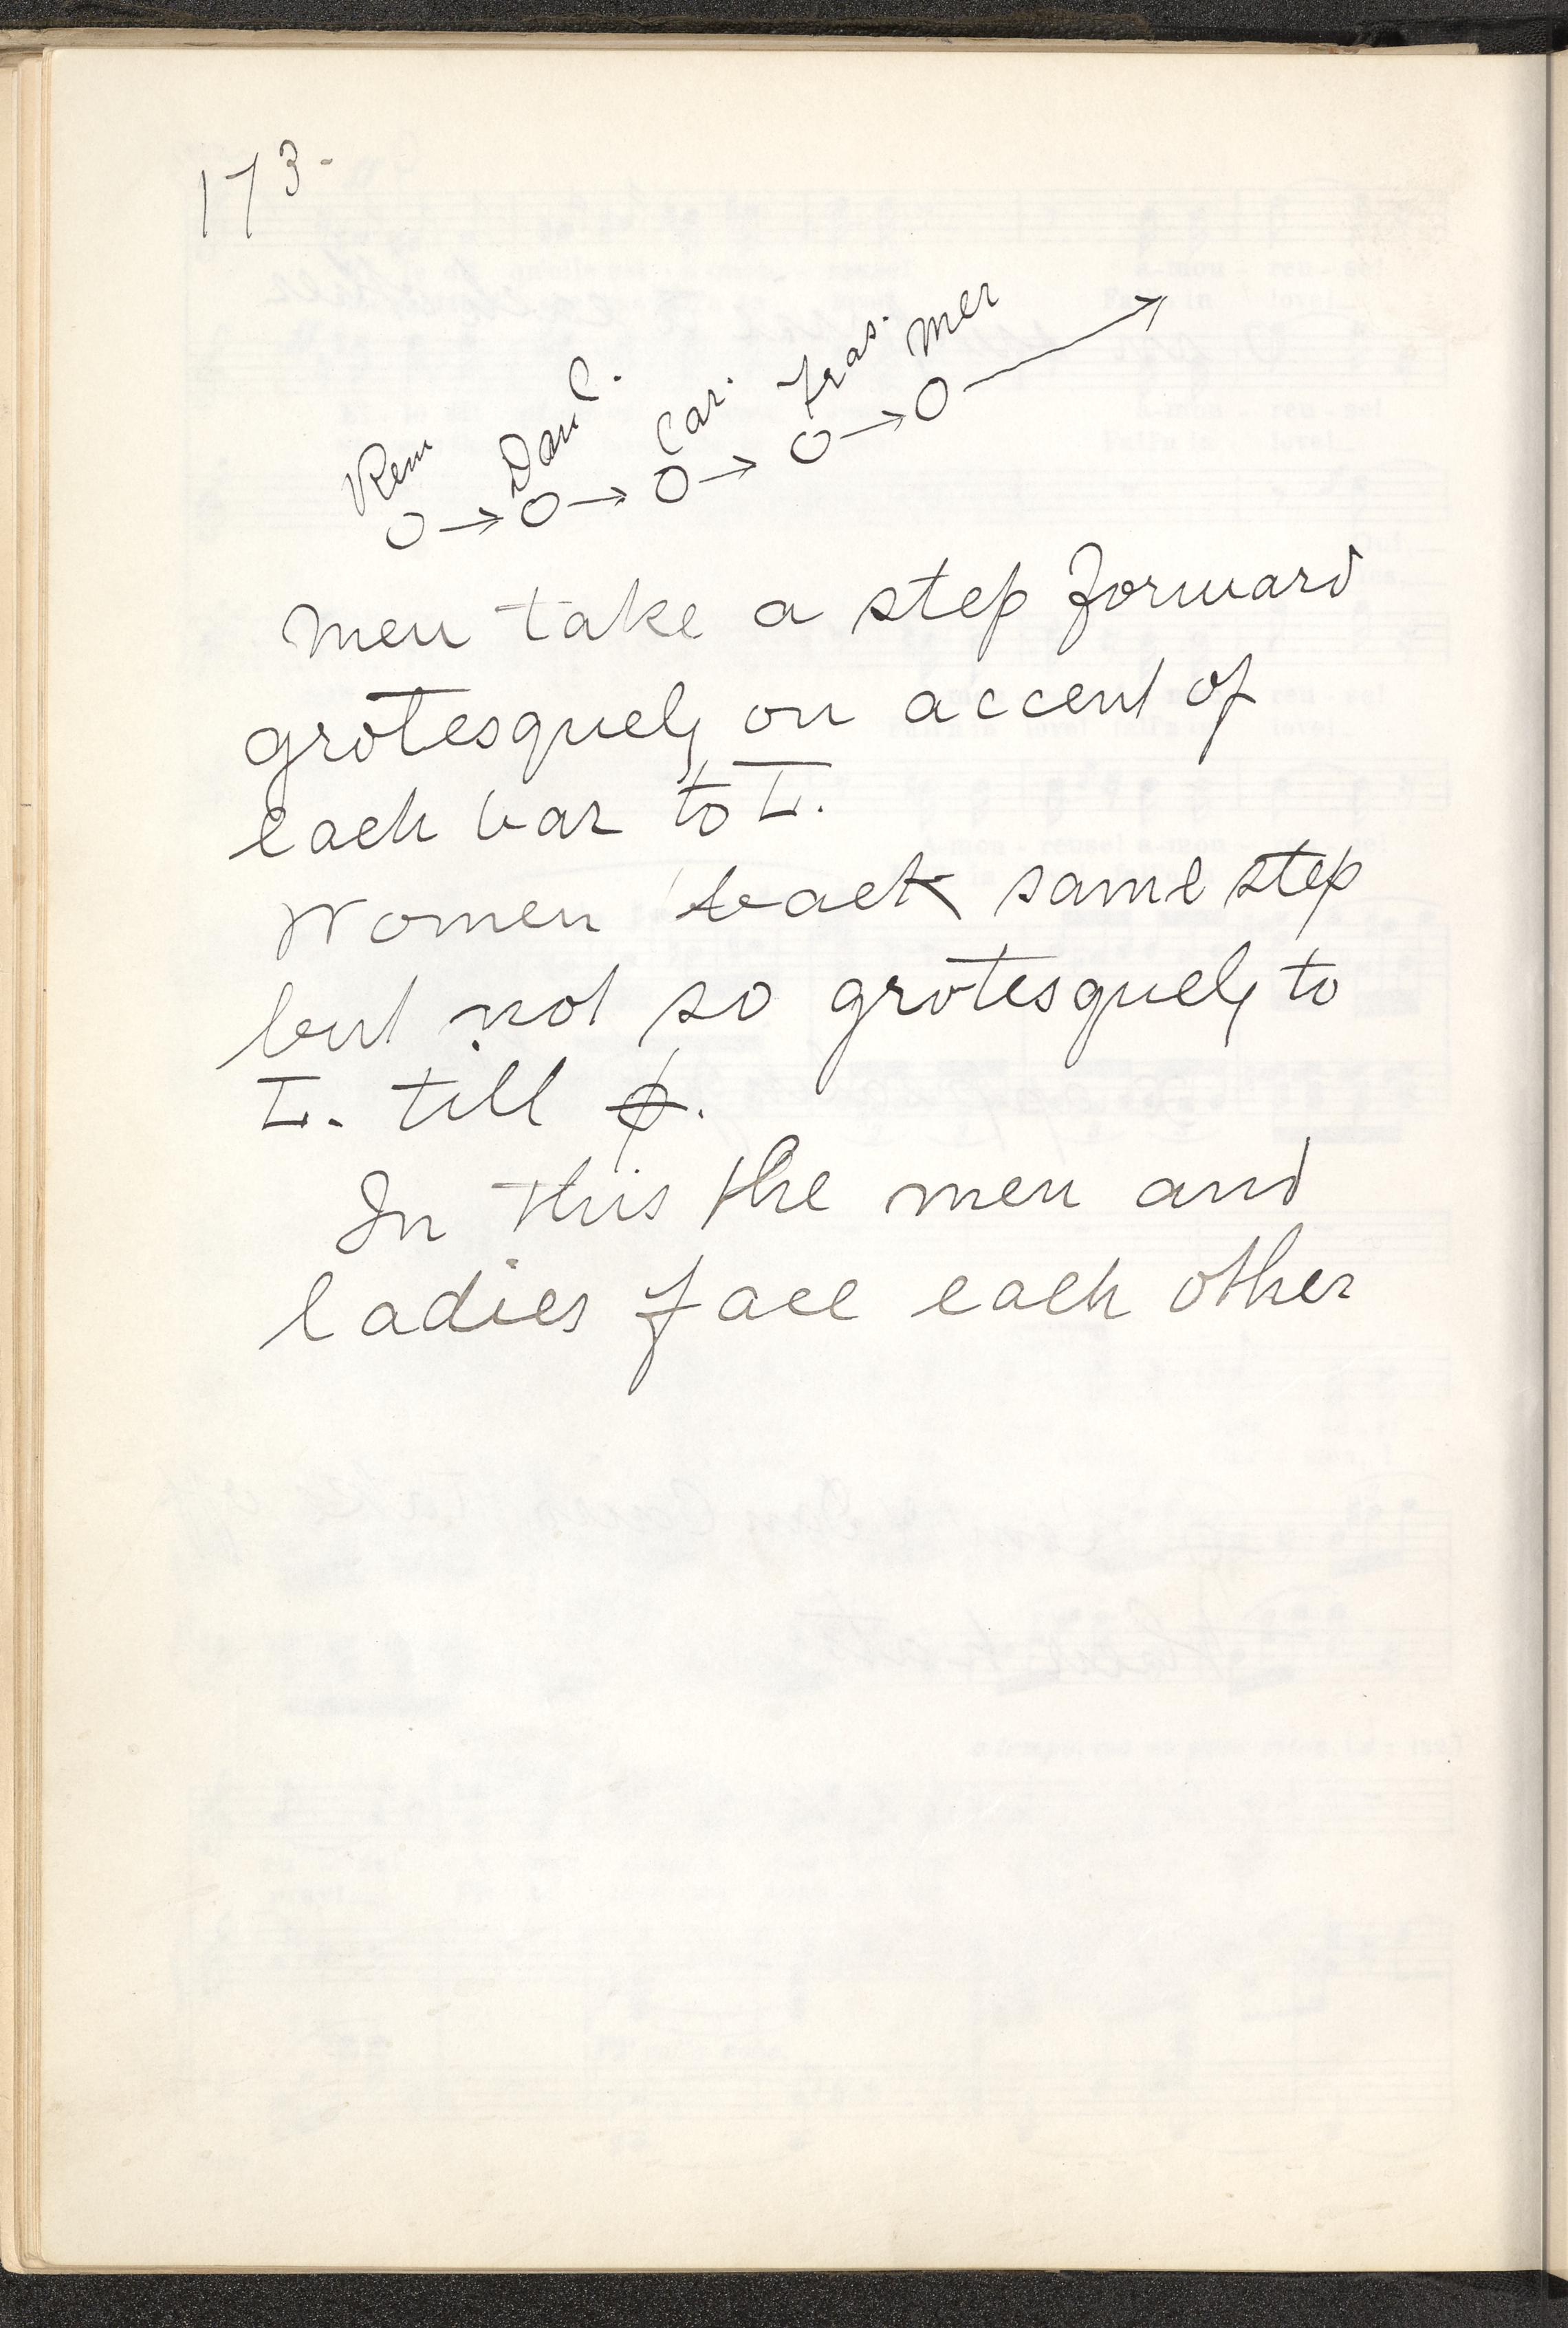 173-
Rem Danl. Car. Fras. Mer
O → O → O → O → O →
Men take a step forward
grotesquely on accent of
each bar to L.
Women back same step
but not so grotesquely to
L. till ϕ.
In this the men and
ladies face each other